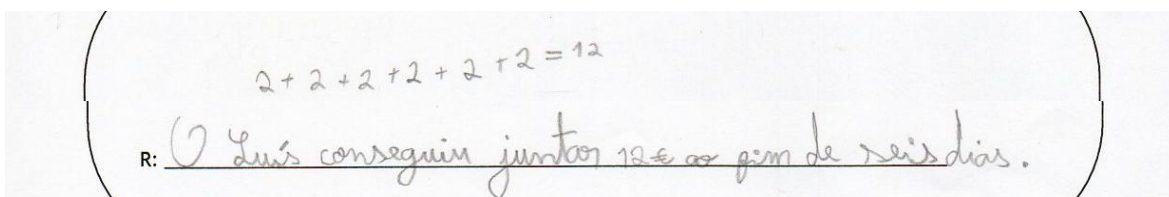 2+2+2+2+2+2=12
R: O Luís conseguiu juntar 12€ ao fim de seis dias.